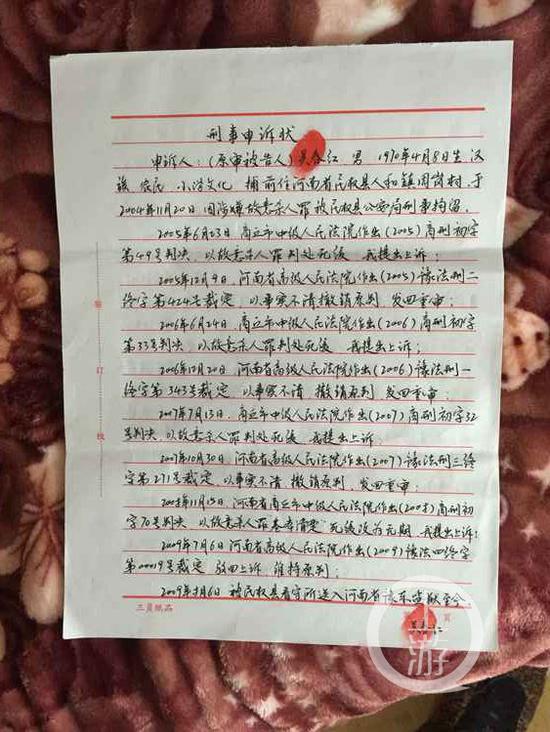 刑事申诉状
申诉人:(原审被告人)吴春红 男 1970年4月8日生 汉
族 农民 小学文化 捕前住河南省民权县人和镇周岗村,于
2004年11月20日因涉嫌故意杀人罪被民权县公安局刑事拘留.
2005年6月23日商丘市中级人民法院作出(2005)商刑初字
第49号判决,以故意杀人罪判处死缓 我提出上诉;
2005年12月9日,河南省高级人民法院作出(2005)豫法刑二
终字第424号裁定,以事实不清撤销原判 发回重审;
2006年6月24日,商丘市中级人民法院作出(2006)商刑初字
第33号判决 以故意杀人罪判处死缓,我提出上诉;
2006年10月20日河南省高级人民法院作出(2006)豫法刑一
终字第343号裁定,以事实不清 撤销原判 发回重审;
2007年7月13日,商丘市中级人民法院作出(2007)商刑初字32
号判决,以故意杀人罪判处死缓 我提出上诉;
2007年10月30日河南省高级人民法院作出(2007)豫法刑三终
字第271号裁定,以事实不清 撤销原判,发回重审;
2008年11月15日河南省商丘市中级人民法院作出(2008)商刑初
字70号判决 以故意杀人罪基本清楚 死缓改为无期,我提出上诉;
2009年7月6日河南省高级人民法院作出(2009)豫法四终字
第00019号裁定 驳回上诉 维持原判;
2009年 月6日 被民权县看守所送入河南省豫东监狱至今
装
订
线
三员纸品
页
吴春红
游